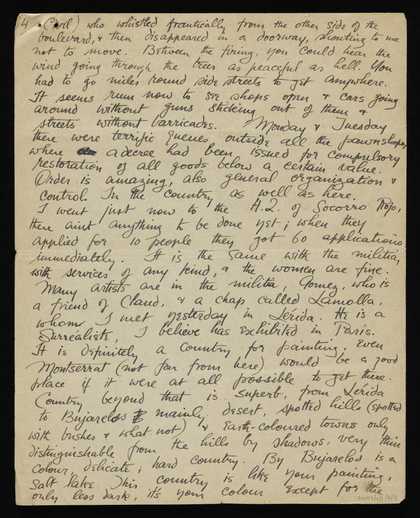 4. (Civil) who whistled frantically from the other side of the
boulevard, & then disappeared in a doorway, shouting to me
not to move. Between the firing, you could hear the
wind going through the trees as peaceful as hell. You
had to go miles round side streets to get anywhere.
It seems rum now to see shops open & cars going
around without guns sticking out of them &
streets without barricades. Monday & Tuesday
there were terrific queues outside all the pawnshops,
where a decree had been issued for compulsory
restoration of all goods below a certain value.
Order is amazing, also general organization &
control. In the country as well as here.
I went just now to the H.Q. of Socorro Rojo,
there aint anything to be done yet; when they
applied for 10 people they got 60 applications
immediately. It is the same with the militia,
with services of any kind, & the women are fine.
Many artists are in the militia, Gomez, who is
a friend of Claud, & a chap called Lamolla,
whom I met yesterday in Lerida. He is a
Surrealist, I believe has exhibited in Paris.
It is definitely a country for painting. Even
Montserrat (not far from here) would be a good
place if it were at all possible to get there.
Country beyond that is superb, from Lerida
to Bujaraloz mainly desert, spotted hills (spotted
with bushes & what not) & earth-coloured towns only
distinguishable from the hills by shadows. very thin
colour, delicate, hard country. By Bujaraloz is a
salt lake. This country is like your painting,
only less dark, it's your colour except for the